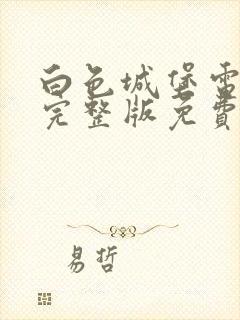 白色城堡電
完整版免費
易哲